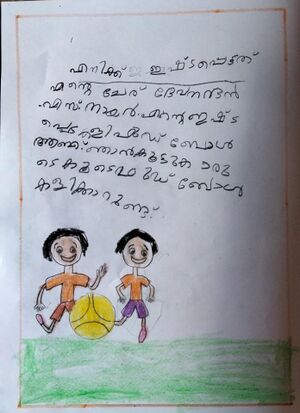 എനിക്ക് ഇഷ്ടപ്പെട്ടത്
എന്റെ പേര് ദേവനന്ദൻ
എന്റെ ഇഷ്ട
പ്പെട്ട കളി ഫുഡ് ബോൾ
ആണ്. ഞാൻ കൂട്ടുകാരു
ടെ കൂടെ ഫുഡ് ബോൾ
കളിക്കാറുണ്ട്.